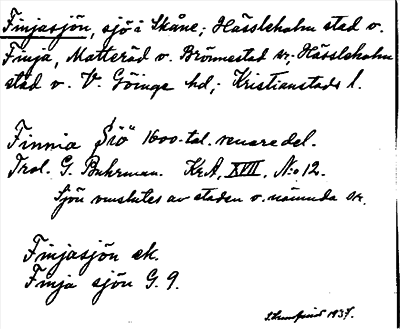 Finjasjön, sjö i Skåne; Hässleholm stad o.
Finja, Matteröd o. Brönnestad sr; Hässleholm
stad o. V. Göinge hd; Kristianstads l.
Finnia Siö 1600-tal. senare del.
Trol. G. Buhrman. KrA, XVII, No 12.
Sjön omslutes av staden o. nämnda sr.
Finjasjön ek.
Finja sjön G. 9.
1937.